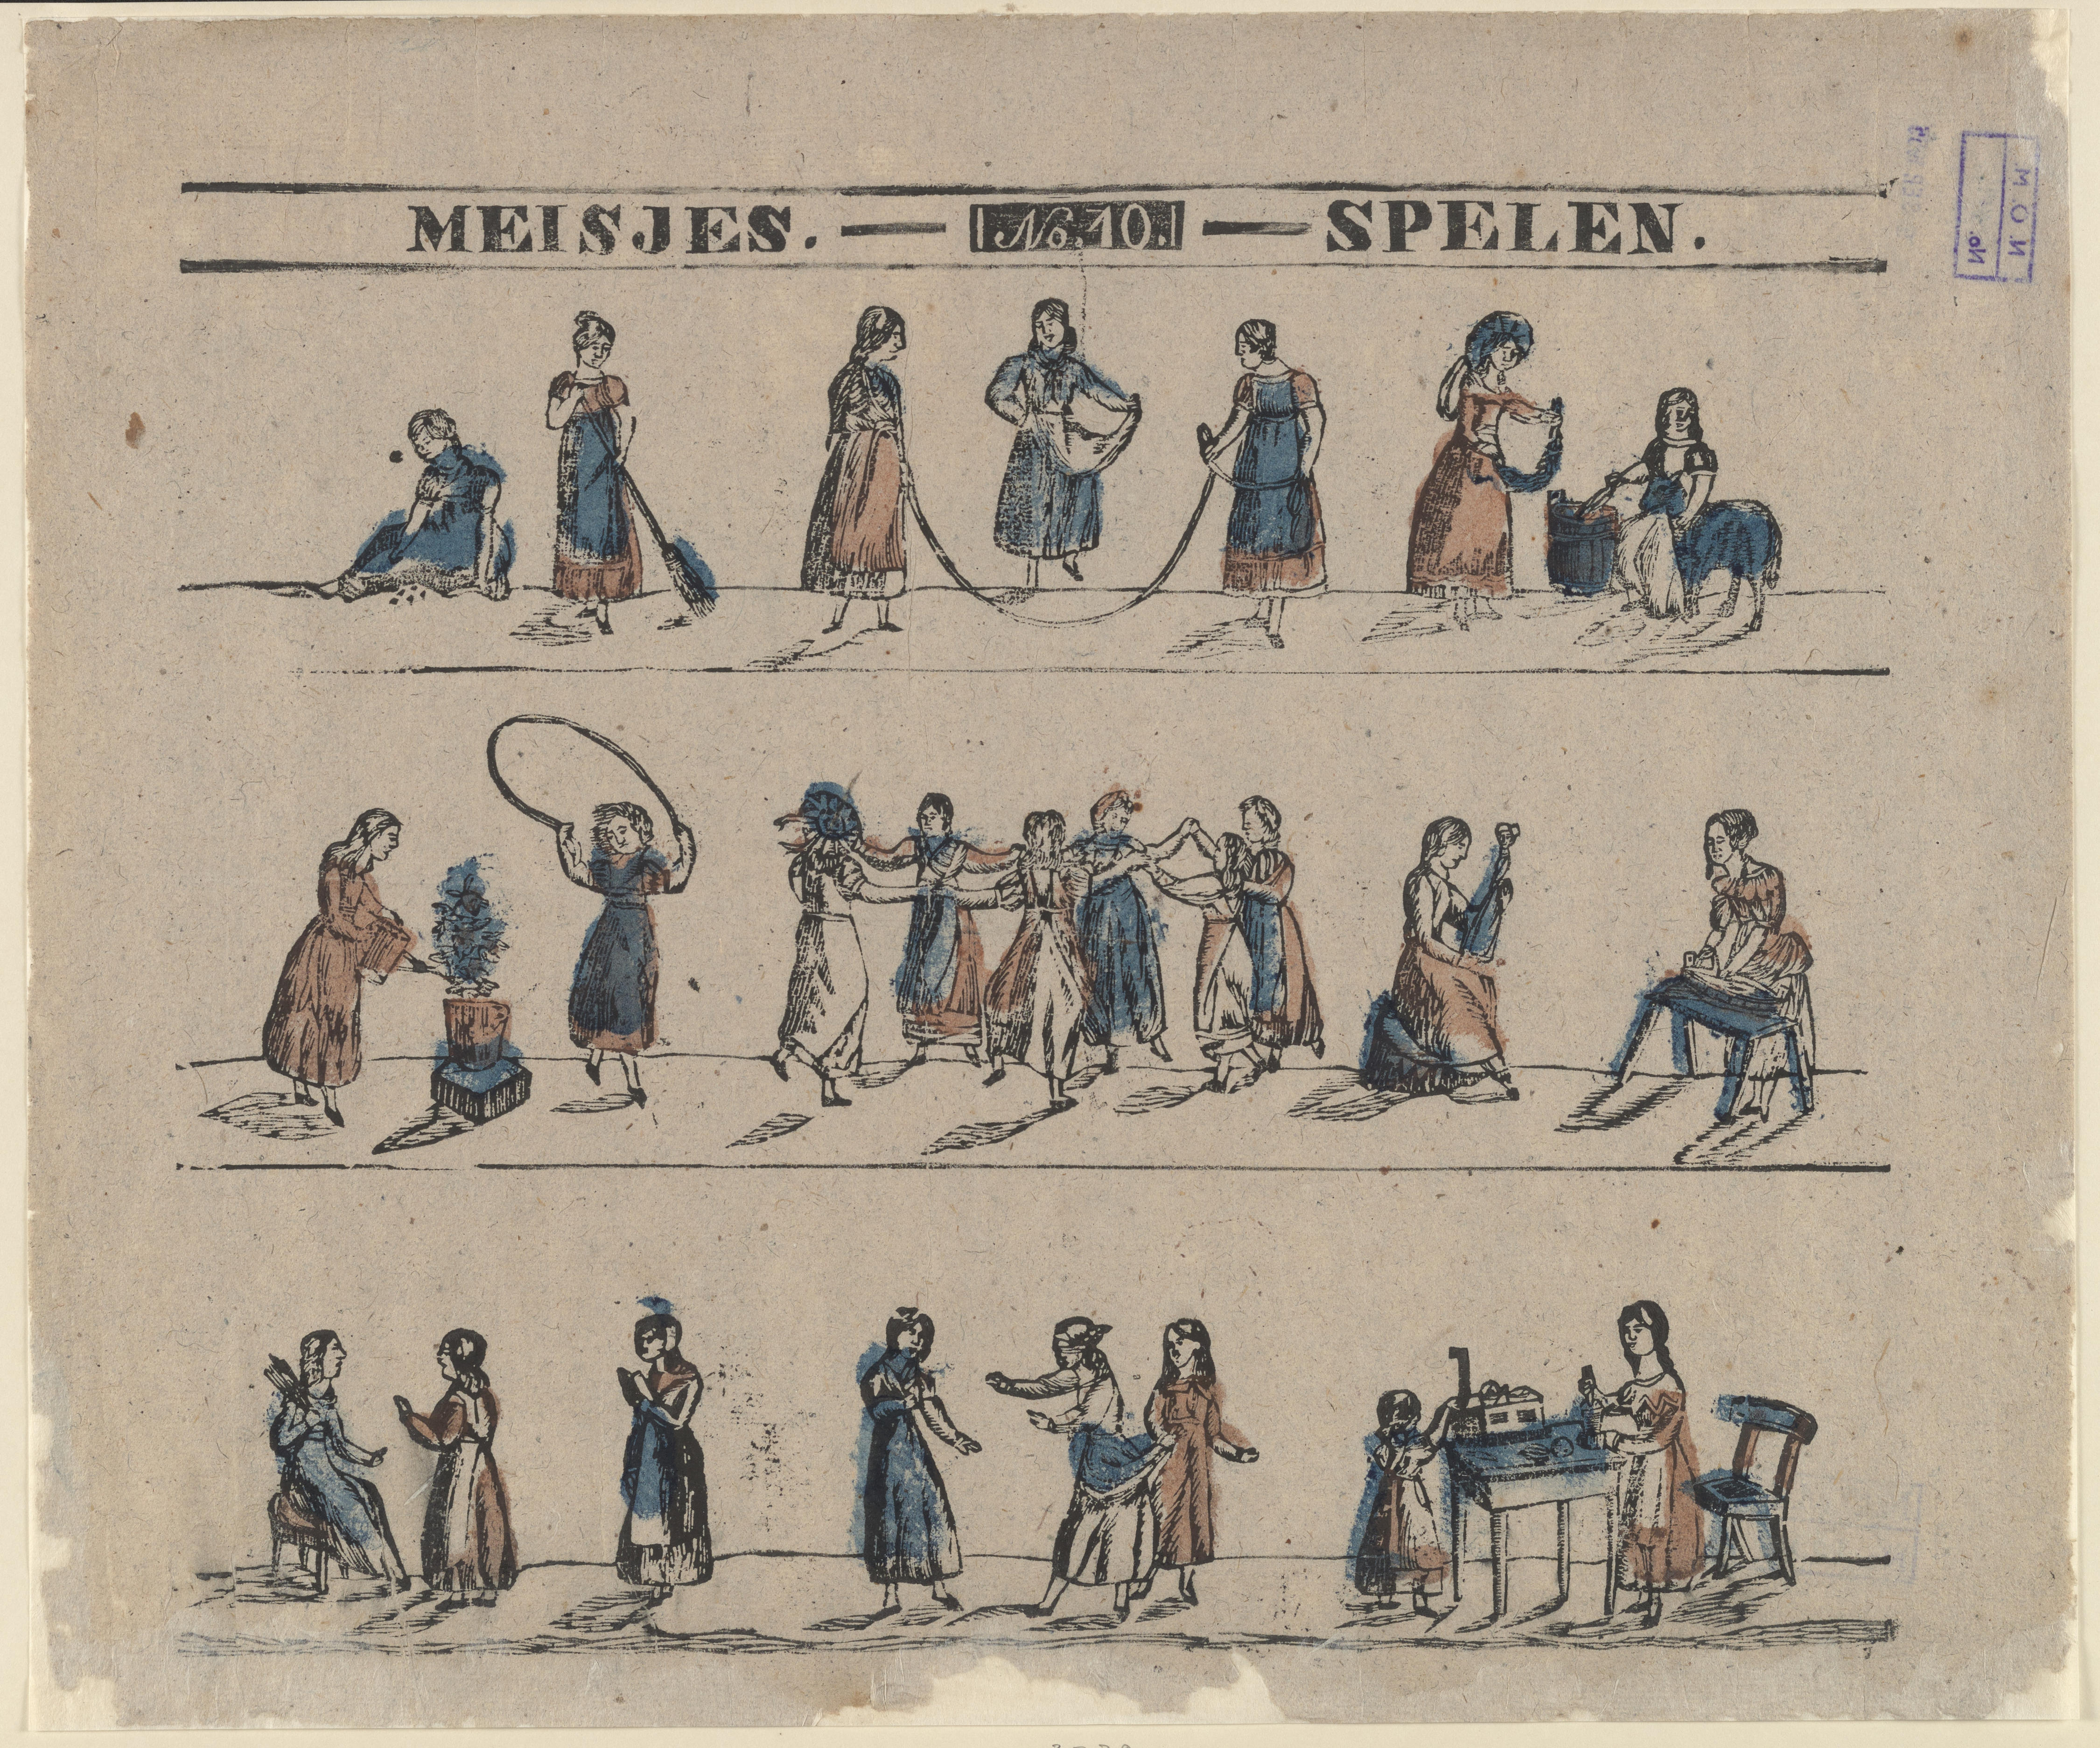 MEISJES. — No. 10. — SPELEN.
M O.N
No.